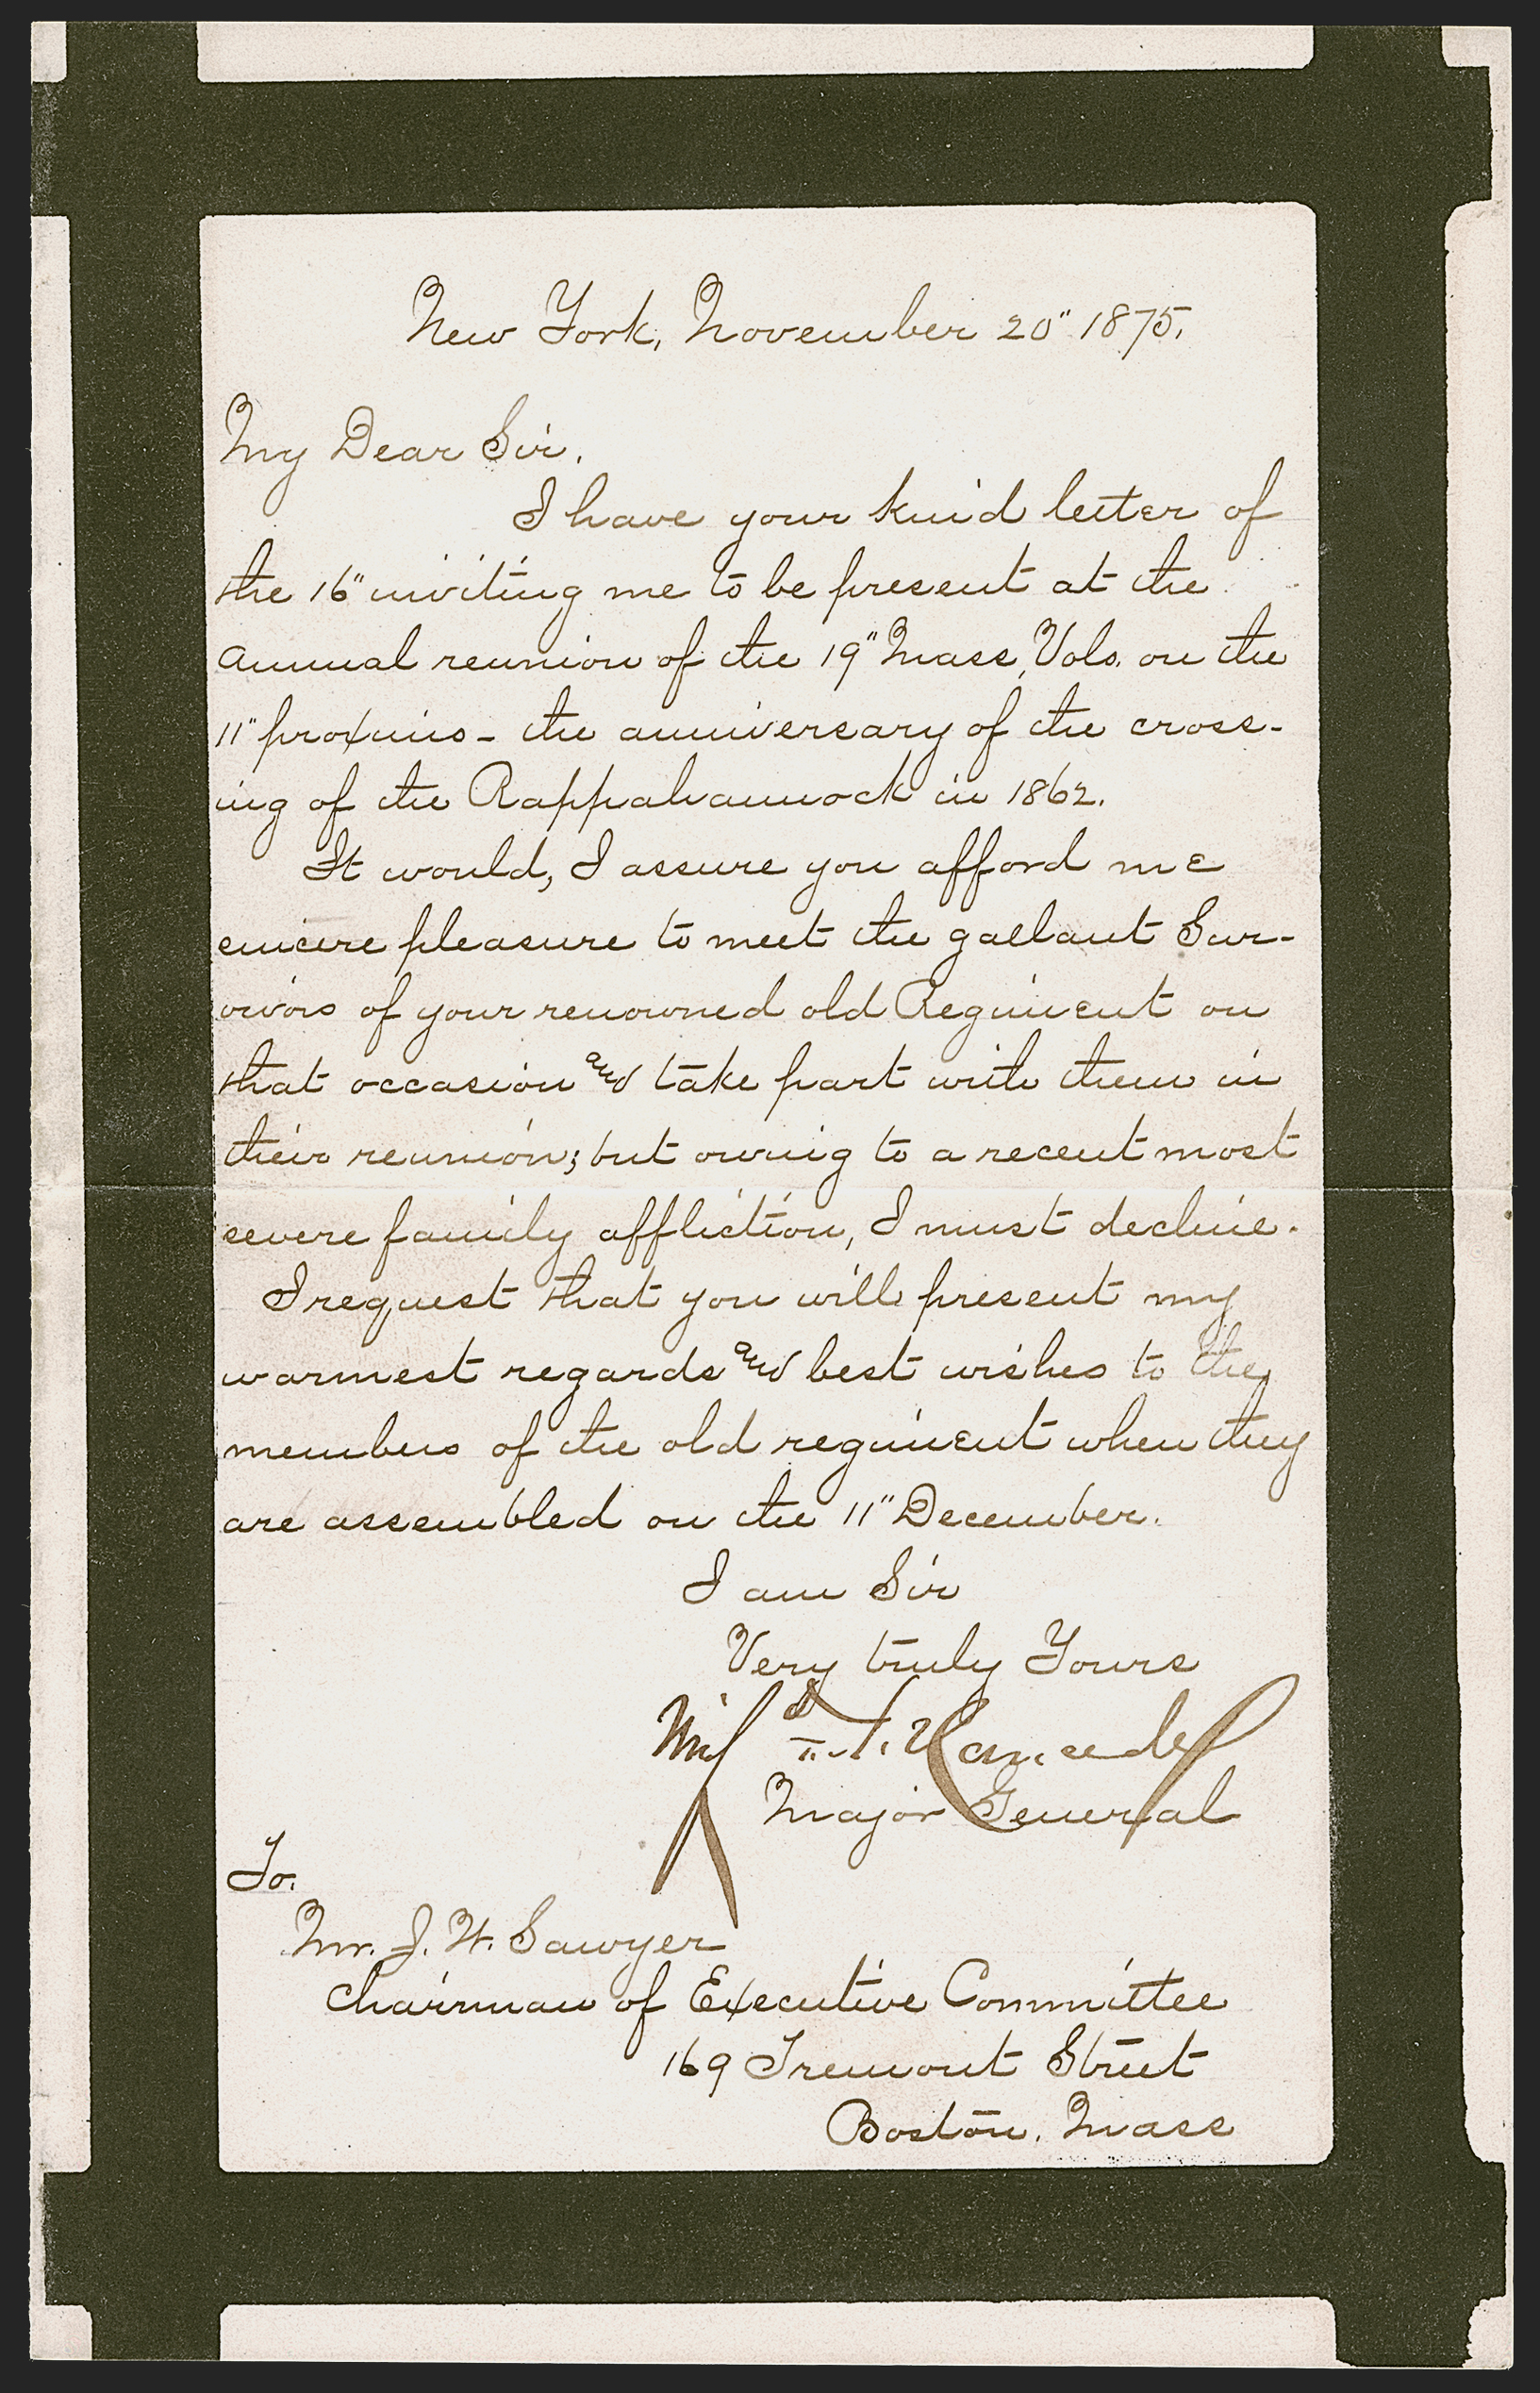 New York, November 20" 1875.
My Dear Sir.
I have your kind letter of
the 16" inviting me to be present at the
annual reunion of the 19" Mass. Vols. on the
11" proximo - the anniversary of the cross-
ing of the Rappahannock in 1862.
It would, I assure you afford me
sincere pleasure to meet the gallant Sur-
vivors of your renowned old Regiment on
that occasion and take part with them in
their reunion; but owing to a recent most
severe family affliction, I must decline.
I request that you will present my
warmest regards and best wishes to the
members of the old regiment when they
are assembled on the 11" December.
I am Sir
Very truly Yours
Major General
To.
Mr. J. W. Sawyer
Chairman of Executive Committee
169 Tremont Street
Boston. Mass